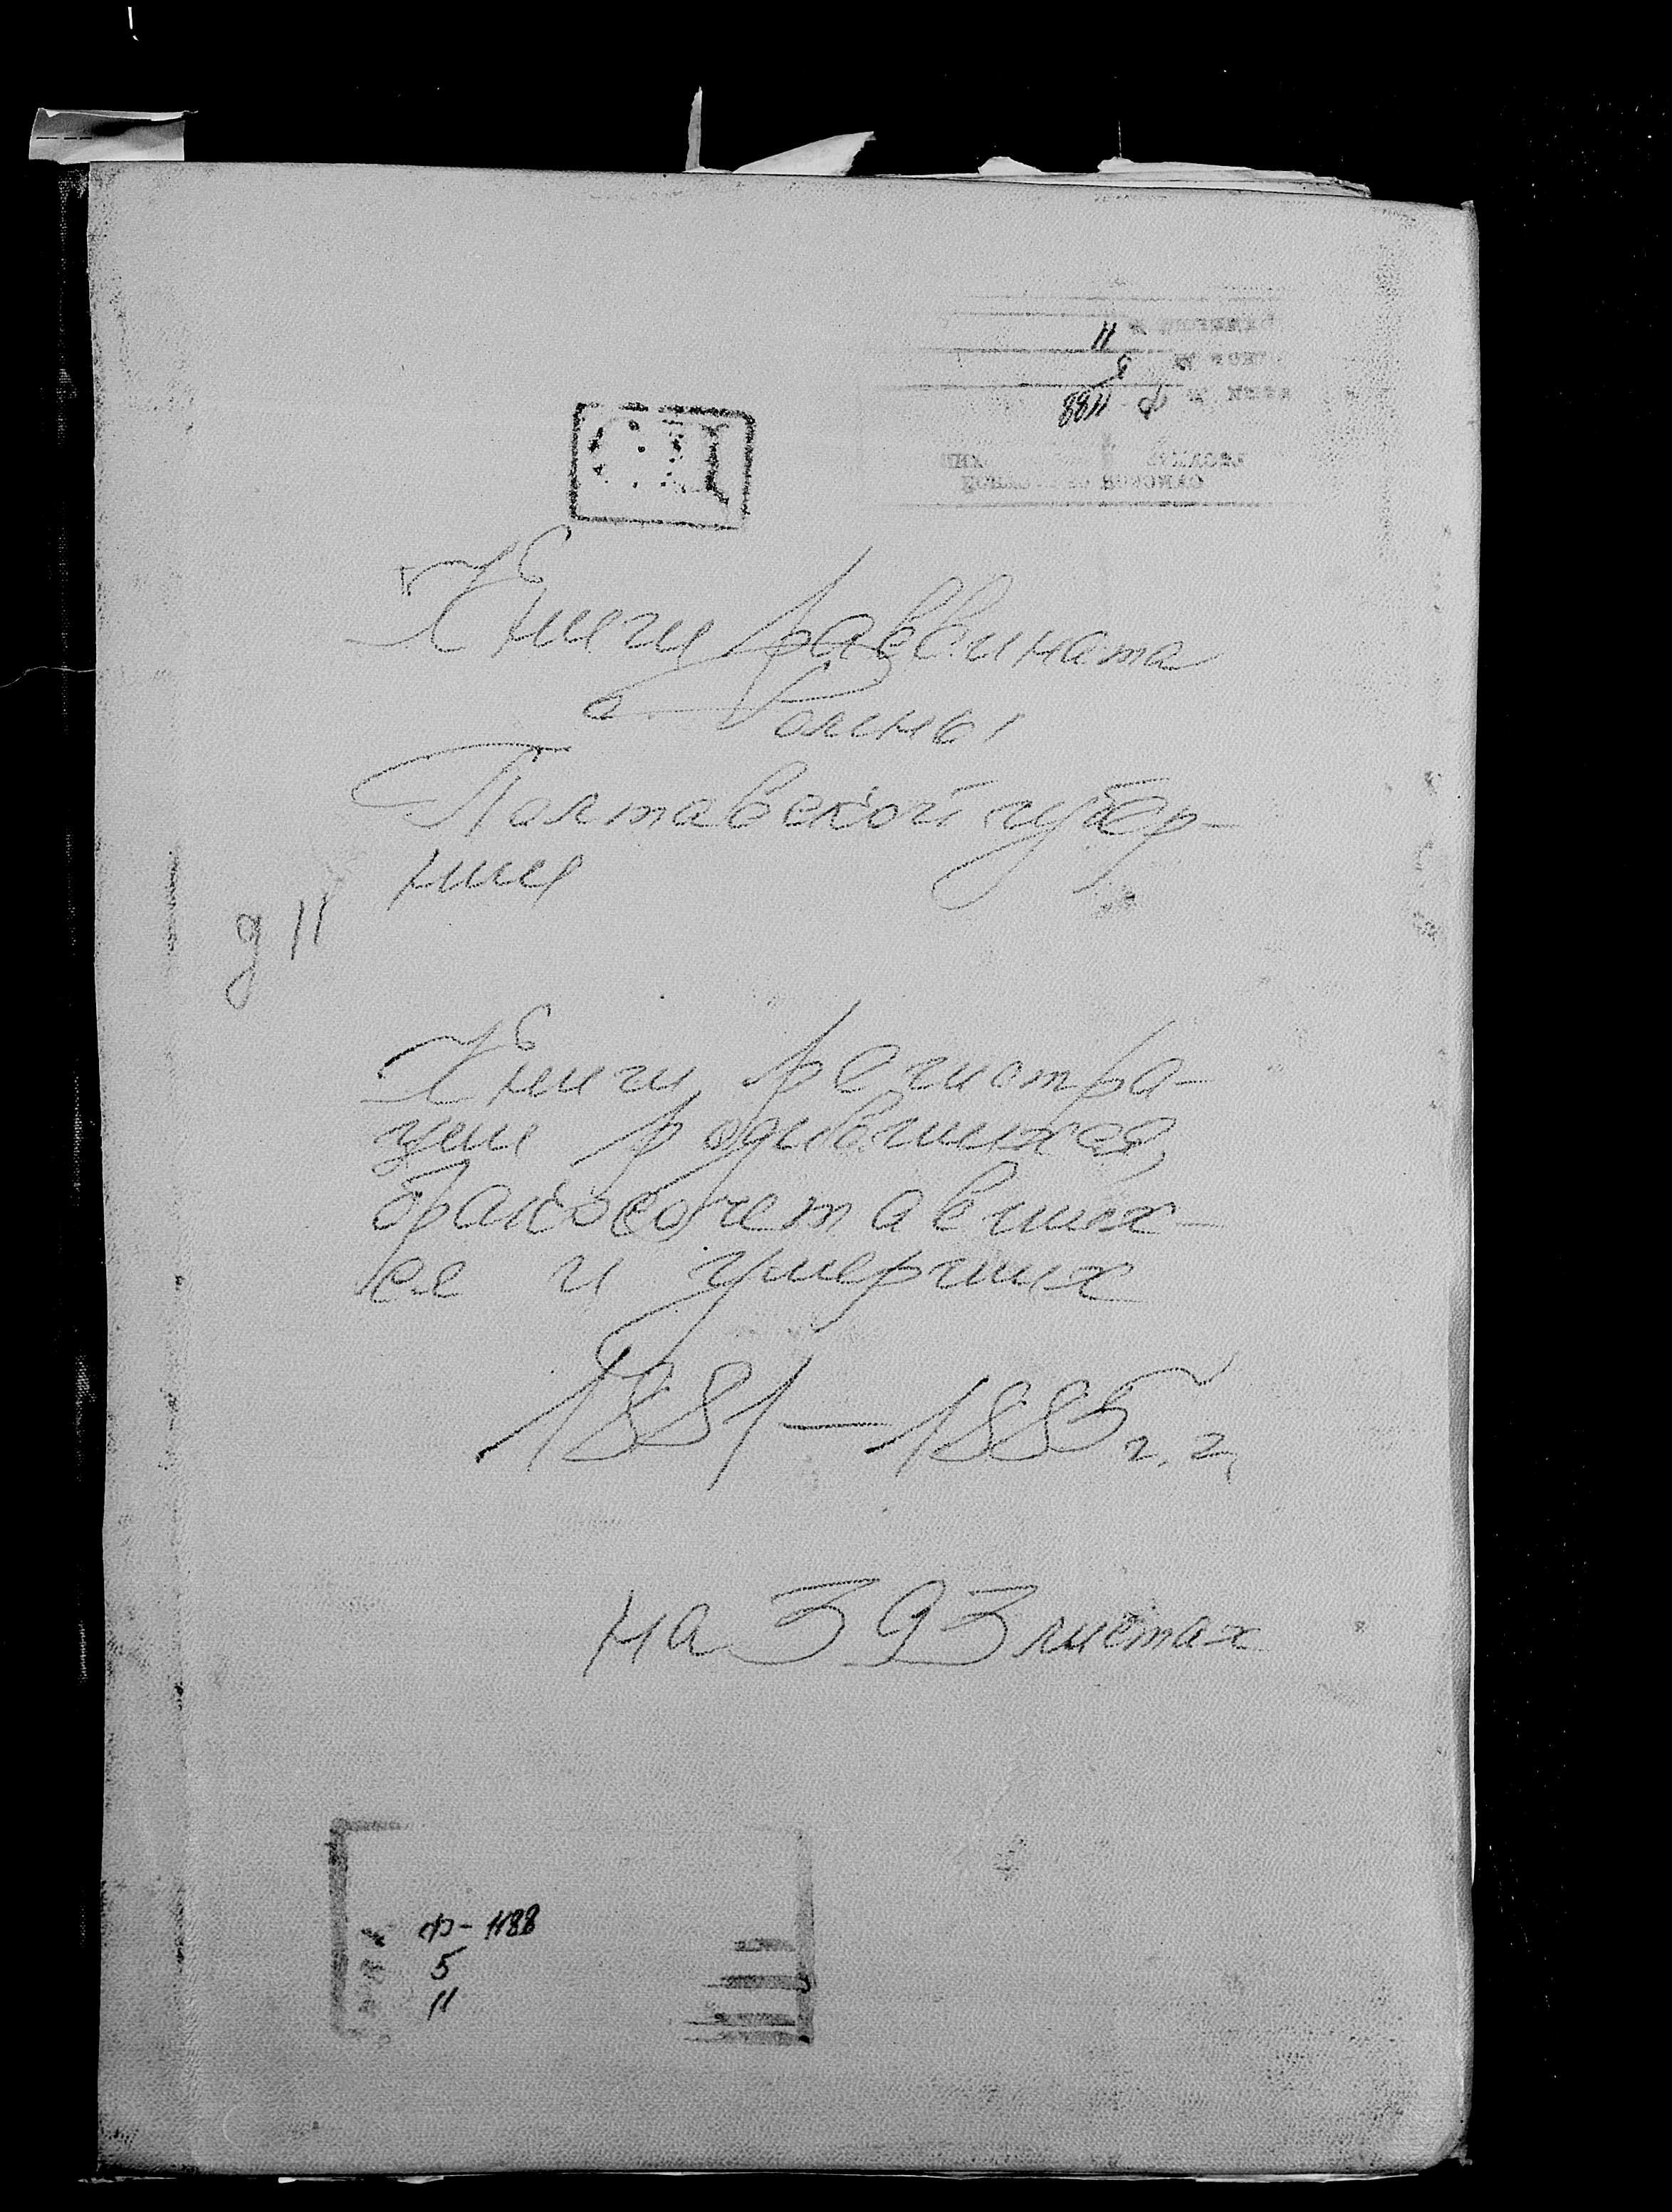 11
5
ф-1188
Книги раввината
г. Ромны
Полтавской губер-
нии
д 11
Книги регистра-
ции родившихся,
бракосочетавших-
ся и умерших
1881-1885 г.г.
на 393 листах
ф-1188
5
11